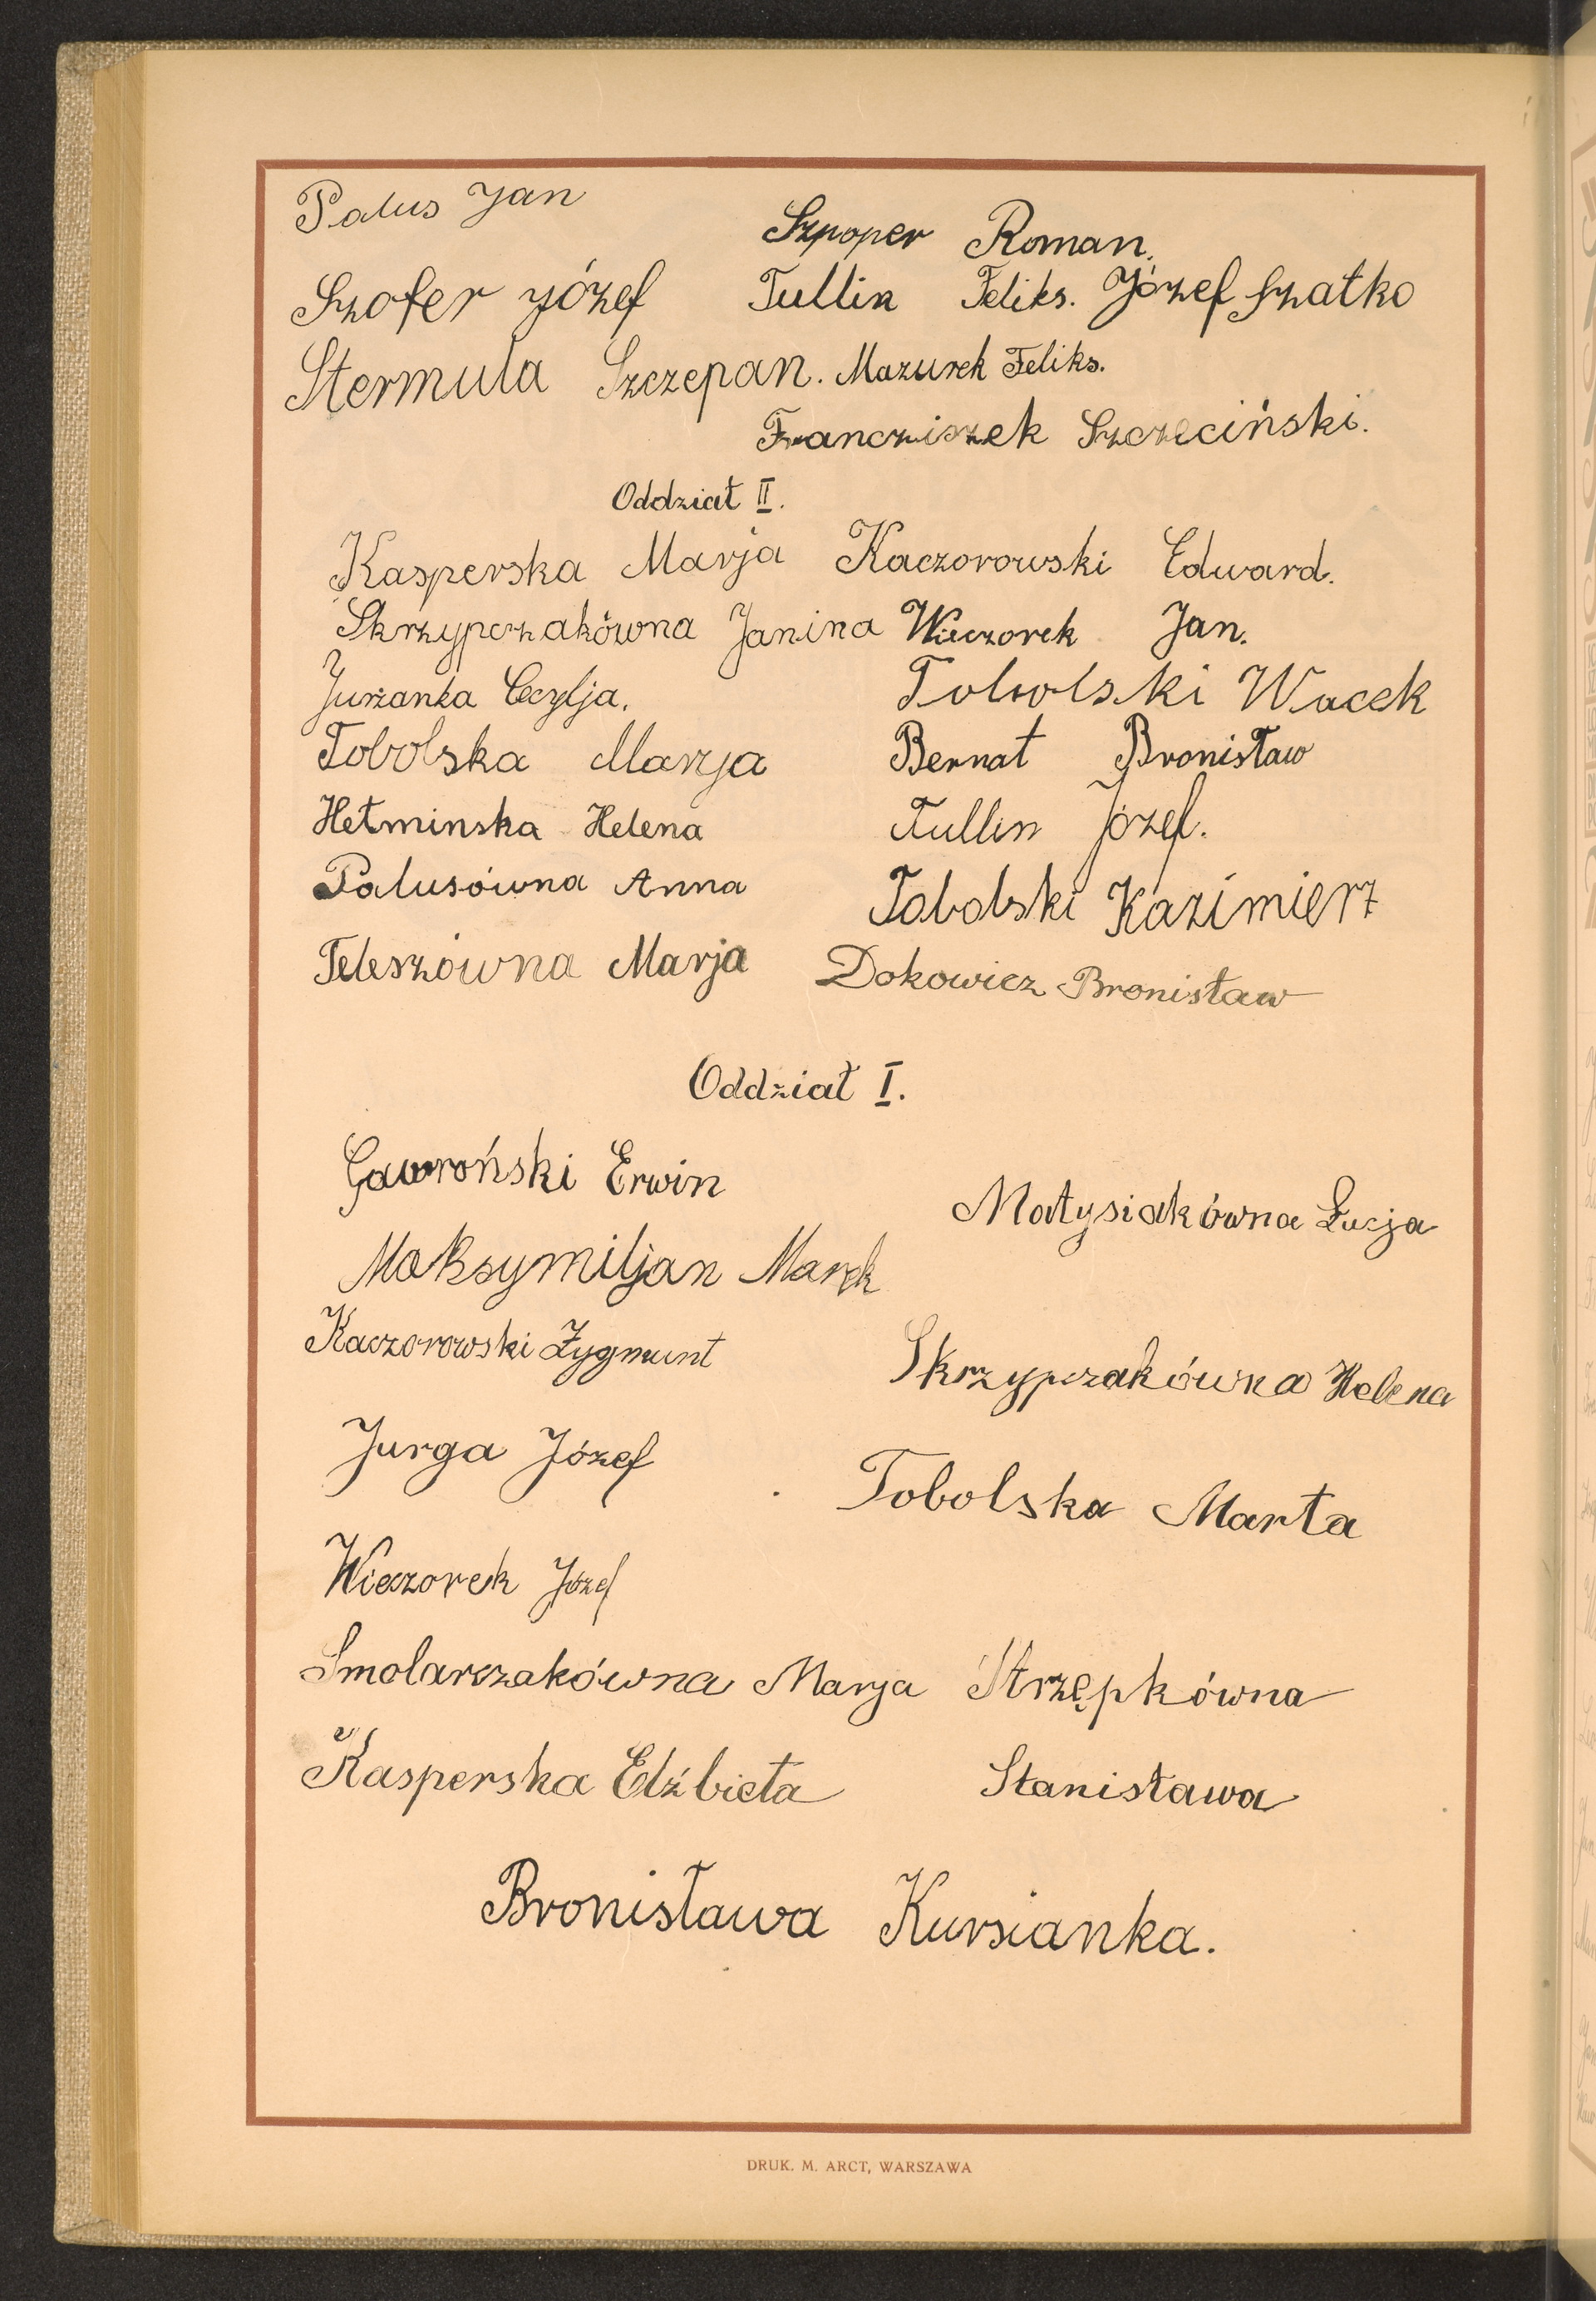 Palus Jan
Szpoper Roman.
Szofer Józef Tullin Feliks. Józef Szatko
Stermula Szczepan. Mazurek Feliks.
Francziszek Szczeciński.
Oddział II.
Kasperska Marja Kaczorowski Edward.
Skrzypczakówna Janina Wieczorek Jan.
Jurżanka Cecylja. Tobolski Wacek
Tobolska Marja Bernat Bronisław
Hetminska Helena Tullin Józef.
Palusówna Anna Tobolski Kazimierz
Teleszówna Marja Dokowicz Bronisław
Oddział I.
Gawroński Erwin
Matysiakówna Łucja
Maksymiljan Marek
Kaczorowski Zygmunt
Skrzypczakówna Helena
Jurga Józef
Tobolska Marta
Wieczorek Józef
Smolarczakówna Marja Strzępkówna
Kasperska Elżbieta Stanisława
Bronisława Kursianka.
DRUK. M. ARCT, WARSZAWA